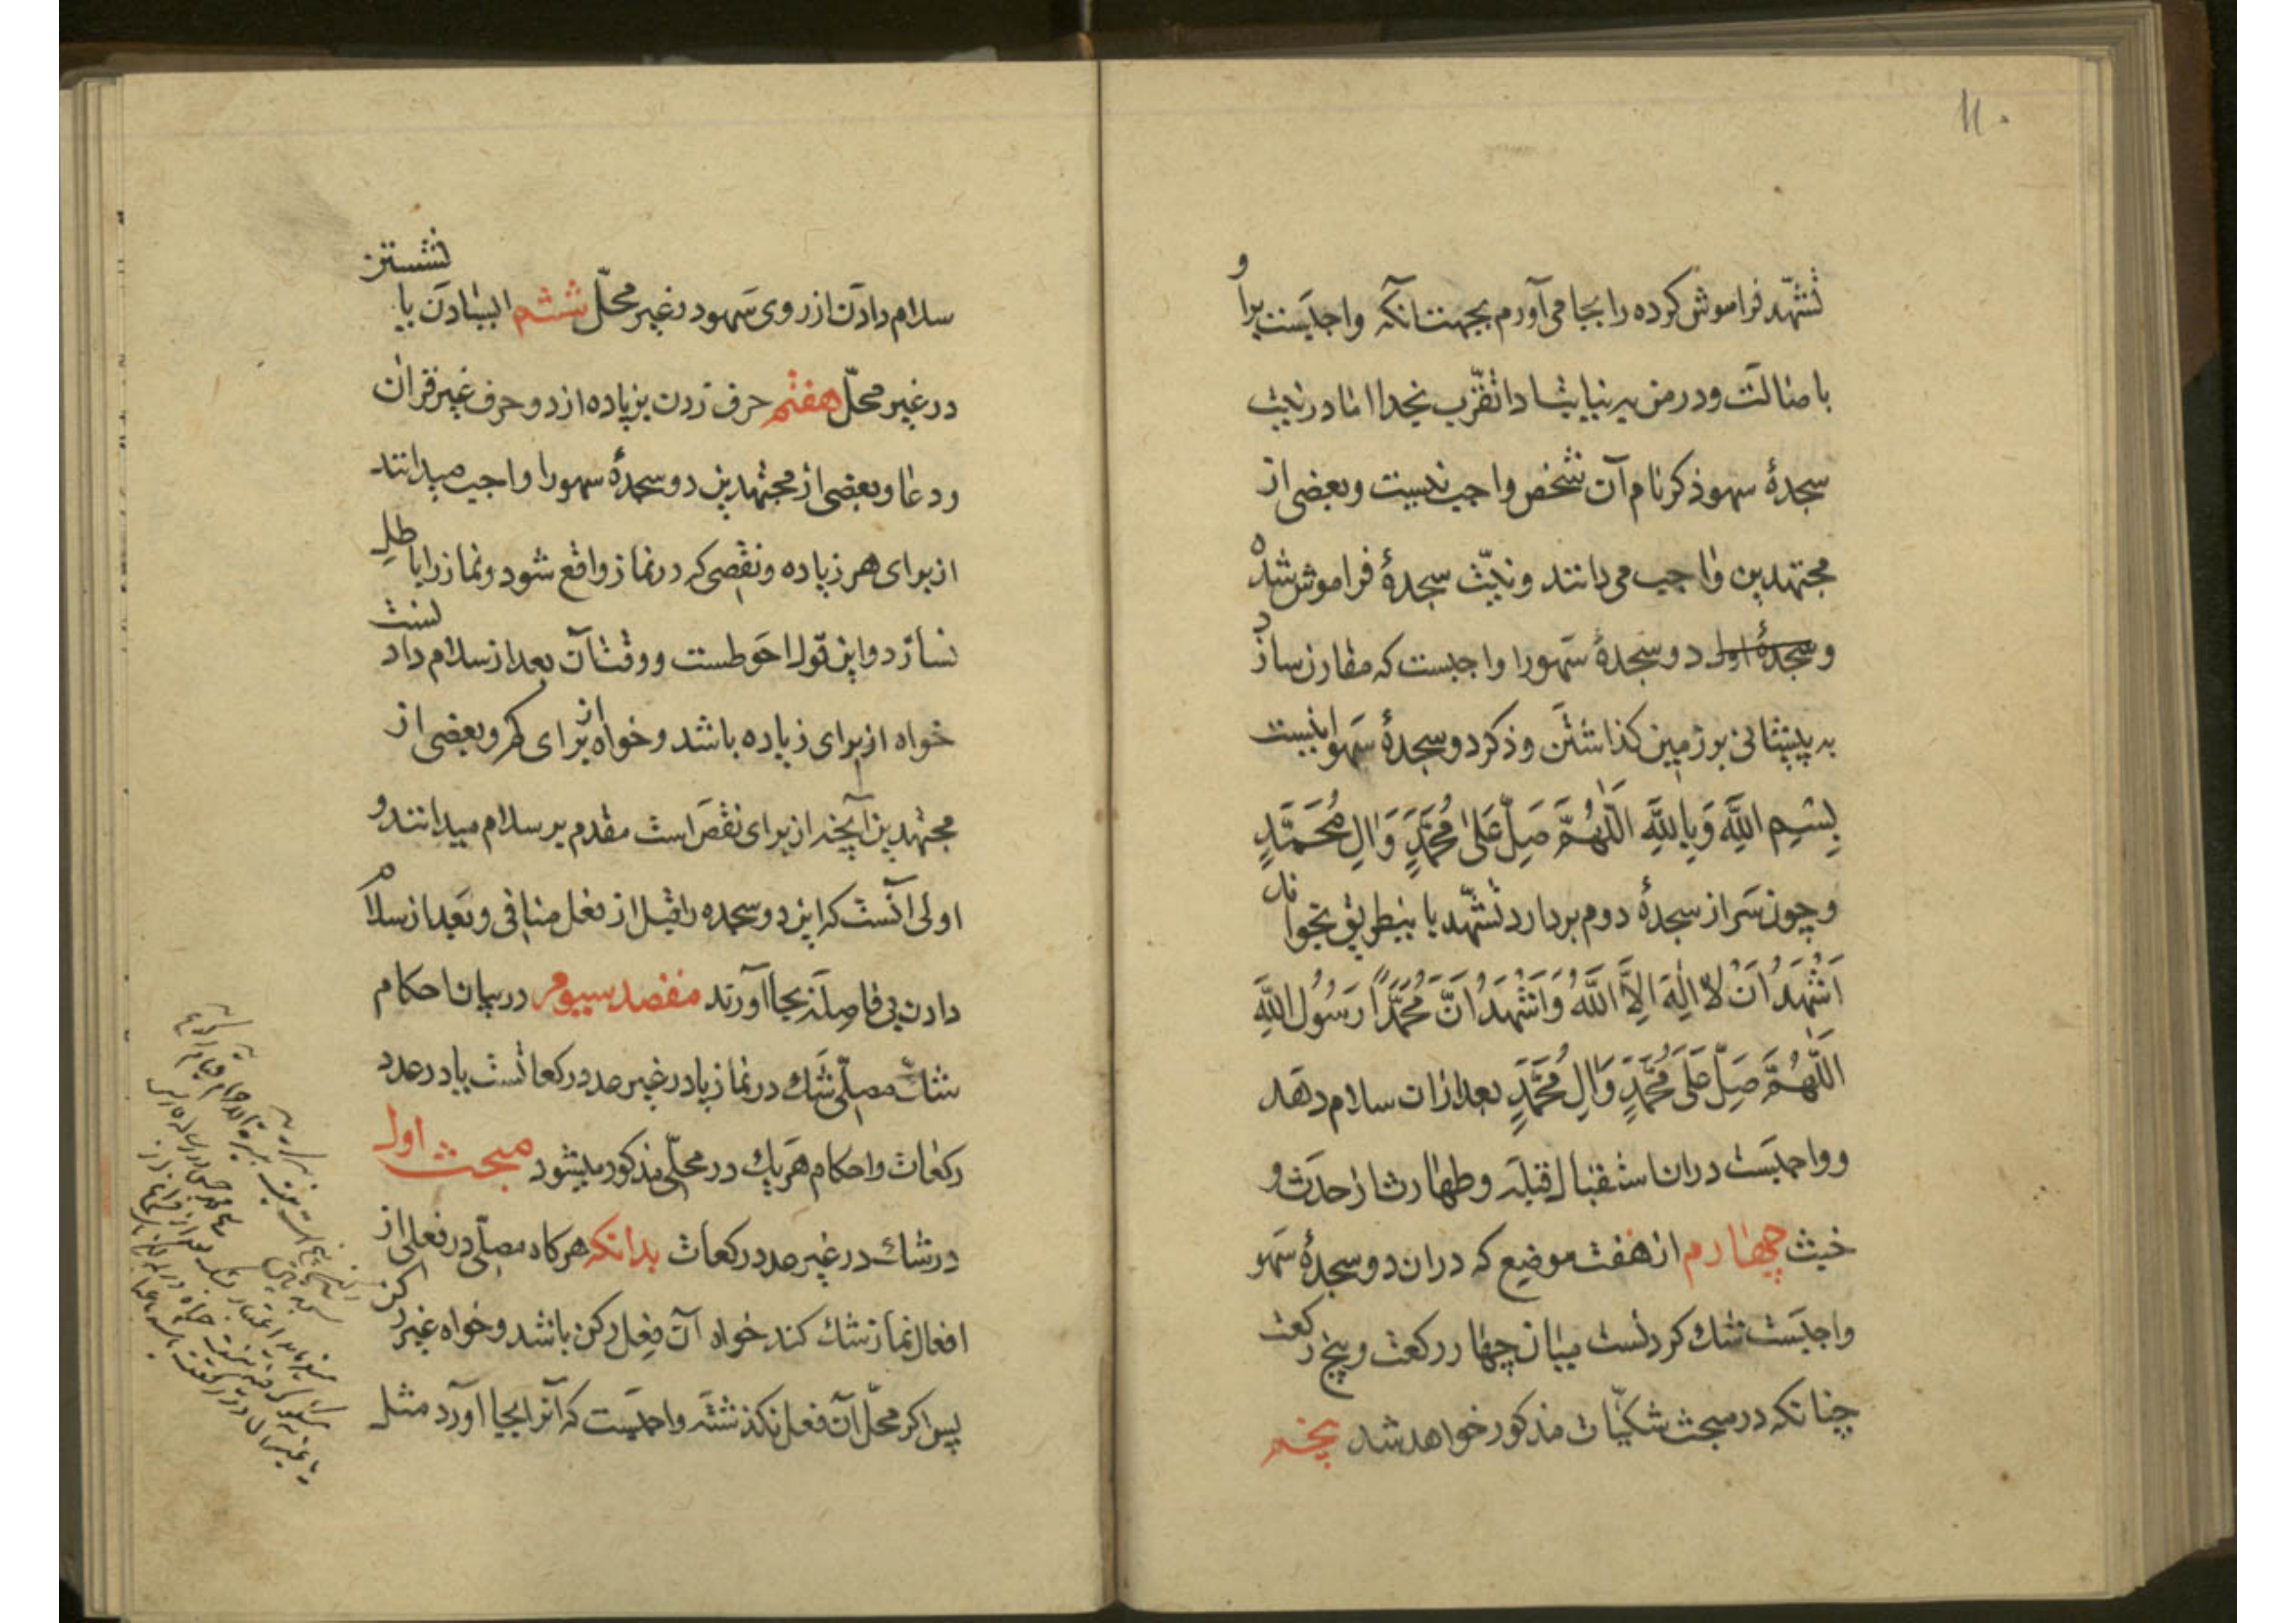 ۱۱۰
تشهّد فراموش کرده را بجا می‌آورم بجهت آنکه واجبست برا و
باصالت و در من به نیابت ادا تقرّب بخدا اما در نیت
سجدهٔ سهو ذکر نام آن شخص واجب نیست و بعضی از
مجتهدین واجب می‌دانند و نیّت سجدهٔ فراموش شده
و سجدهٔ اول دو سجدهٔ سهو را واجبست که مقارن سازد
به پیشانی بر زمین کذاشتن و ذکر دو سجدهٔ سهو اینست
بِسْمِ اللَّهِ وَبِاللَّهِ اَللّهُمَّ صَلِّ عَلىٰ مُحَمَّدٍ وَالِ مُحَمَّدٍ
و چون سر از سجدهٔ دوم بردارد تشهّد باینطریق بخواند
اَشْهَدُ اَنْ لا اِلهَ اِلاَّ اللَّهُ وَاَشْهَدُ اَنَّ مُحَمَّدًا رَسُولُ اللَّهِ
اَللّهُمَّ صَلِّ عَلَى مُحَمَّدٍ وَالِ مُحَمَّدٍ بعد ازان سلام دهد
و واجبست دران استقبال قبله و طهارت از حدث و
خبث چهارم از هفت موضع که دران دو سجدهٔ سهو
واجبست شک کردنست میان چهار رکعت و پنج رکعت
چنانکه در مبحث شکیّات مذکور خواهد شد پنجم
سلام دادن از روی سهو در غیر محلّ ششم ایستادن یا نشستن
در غیر محلّ هفتم حرف زدن بزیاده از دو حرف غیر قران
و دعا و بعضی از مجتهدین دو سجدهٔ سهو را واجب میدانند
از برای هر زیاده و نقصی که در نماز واقع شود و نماز را باطل
نسازد و این قول احوطست و وقت آن بعد از سلام دادنست
خواه از برای زیاده باشد و خواه از برای کم و بعضی از
مجتهدین آنچه از برای نقص است مقدم بر سلام میدانند و
اولی آنست که این دو سجده را قبل از فعل منافی و بعد از سلام
دادن بی فاصله بجا آورند مقصد سیوم در بیان احکام
شک مصلّی شک در نماز یا در غیر عدد رکعاتست یا در عدد
رکعات و احکام هر یک در محلّی مذکور میشود مبحث اول
در شک در غیر عدد رکعات بدانکه هرکاه مصلّی در فعلی از
افعال نماز شک کند خواه آن فعل رکن باشد و خواه غیر رکن
پس اکر محلّ آن فعل نکذشته واجبست که آنرا بجا آورد مثل